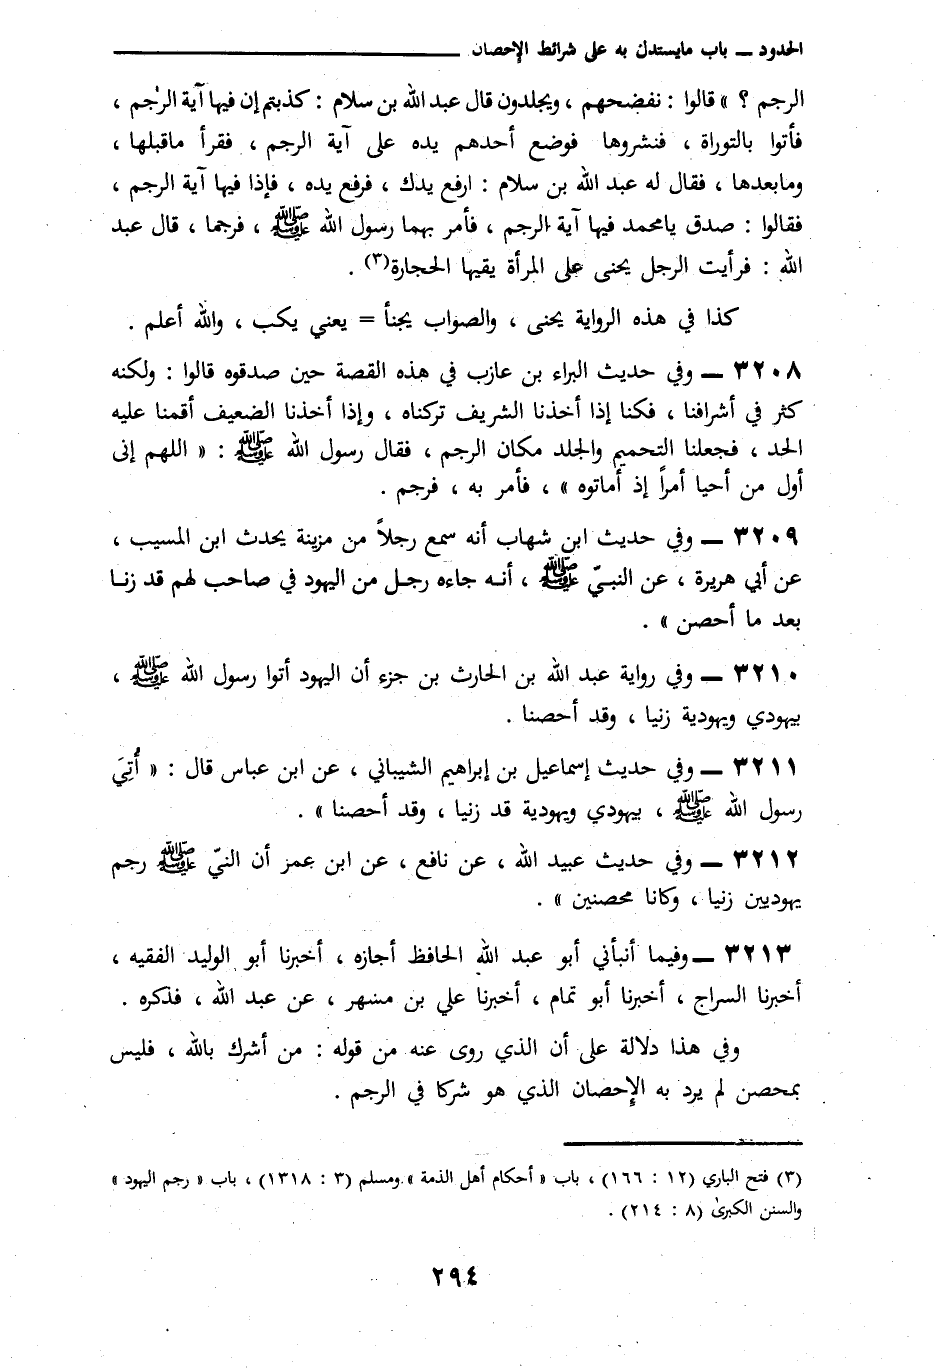 الحدود ــ باب مايستدل به على شرائط الإحصان
الرجم ؟ » قالوا : نفضحهم ، ويجلدون قال عبد الله بن سلام : كذبتم إن فيها آية الرجم ،
فأتوا بالتوراة ، فنشروها فوضع أحدهم يده على آية الرجم ، فقرأ ماقبلها ،
ومابعدها ، فقال له عبد الله بن سلام : ارفع يدك ، فرفع يده ، فإذا فيها آية الرجم ،
فقالوا : صدق يامحمد فيها آية الرجم ، فأمر بهما رسول الله ﷺ ، فرجما ، قال عبد
الله : فرأيت الرجل يحنى على المرأة يقيها الحجارة(٣) .
كذا في هذه الرواية يحنى ، والصواب يجنأ = يعني يكب ، والله أعلم .
٣٢٠٨ ــ وفي حديث البراء بن عازب في هذه القصة حين صدقوه قالوا : ولكنه
كثر في أشرافنا ، فكنا إذا أخذنا الشريف تركناه ، وإذا أخذنا الضعيف أقمنا عليه
الحد ، فجعلنا التحميم والجلد مكان الرجم ، فقال رسول الله ﷺ : « اللهم إنى
أول من أحيا أمراً إذ أماتوه » ، فأمر به ، فرجم .
٣٢٠٩ ــ وفي حديث ابن شهاب أنه سمع رجلاً من مزينة يحدث ابن المسيب ،
عن أبي هريرة ، عن النبيّ ﷺ ، أنه جاءه رجل من اليهود في صاحب لهم قد زنا
بعد ما أحصن » .
٣٢١٠ ــ وفي رواية عبد الله بن الحارث بن جزء أن اليهود أتوا رسول الله ﷺ ،
بيهودي ويهودية زنيا ، وقد أحصنا .
٣٢١١ ــ وفي حديث إسماعيل بن إبراهيم الشيباني ، عن ابن عباس قال : « أُتِيَ
رسول الله ﷺ ، بيهودي ويهودية قد زنيا ، وقد أحصنا » .
٣٢١٢ ــ وفي حديث عبيد الله ، عن نافع ، عن ابن عمر أن النبيّ ﷺ رجم
يهوديين زنيا ، وكانا محصنين » .
٣٢١٣ ــ وفيما أنبأني أبو عبد الله الحافظ أجازه ، أخبرنا أبو الوليد الفقيه ،
أخبرنا السراج ، أخبرنا أبو تمام ، أخبرنا علي بن مسهر ، عن عبد الله ، فذكره .
وفي هذا دلالة على أن الذي روى عنه من قوله : من أشرك بالله ، فليس
بمحصن لم يرد به الإحصان الذي هو شركا في الرجم .
(٣) فتح الباري (١٢ : ١٦٦) ، باب « أحكام أهل الذمة » ومسلم (٣ : ١٣١٨) ، باب « رجم اليهود »
والسنن الكبرى (٨ : ٢١٤) .
٢٩٤